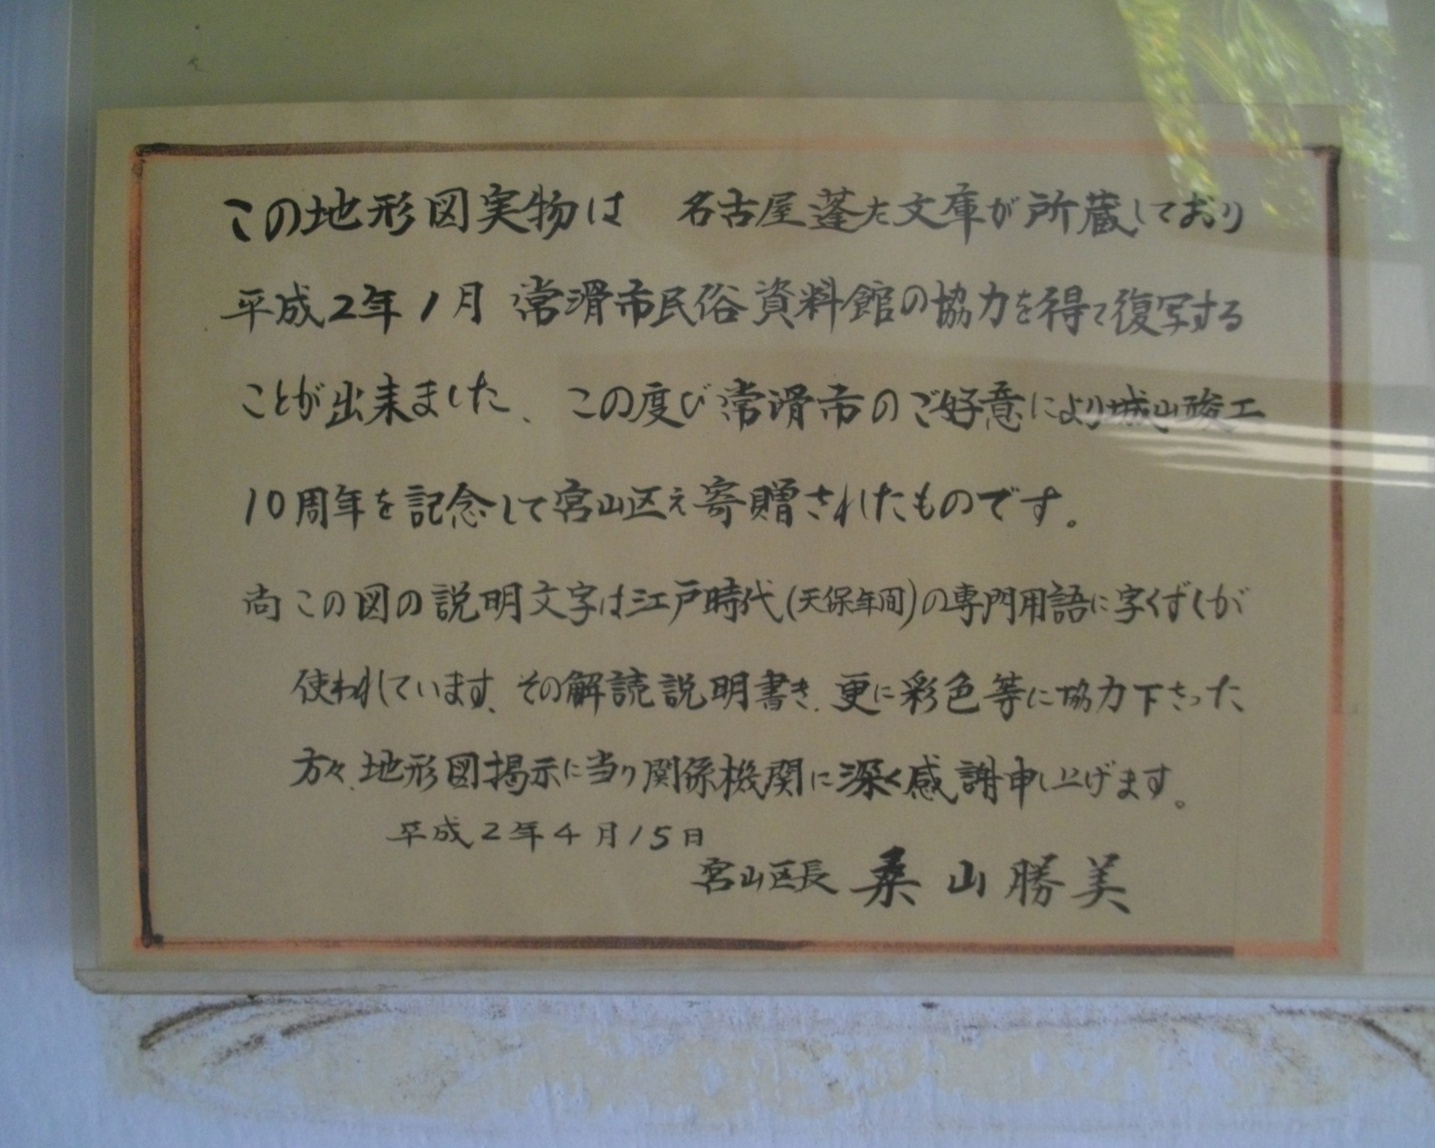 この地形図実物は 名古屋蓬左文庫が所蔵しており
平成2年1月 常滑市民俗資料館の協力を得て復写する
ことが出来ました、この度び常滑市のご好意により城山竣工
10周年を記念して宮山区え寄贈されたものです。
尚この図の説明文字は江戸時代(天保年間)の専門用語に字くずしが
使われています、その解読説明書き、更に彩色等に協力下さった
方々、地形図掲示に当り関係機関に深く感謝申し上げます。
平成2年4月15日
宮山区長 桑山勝美